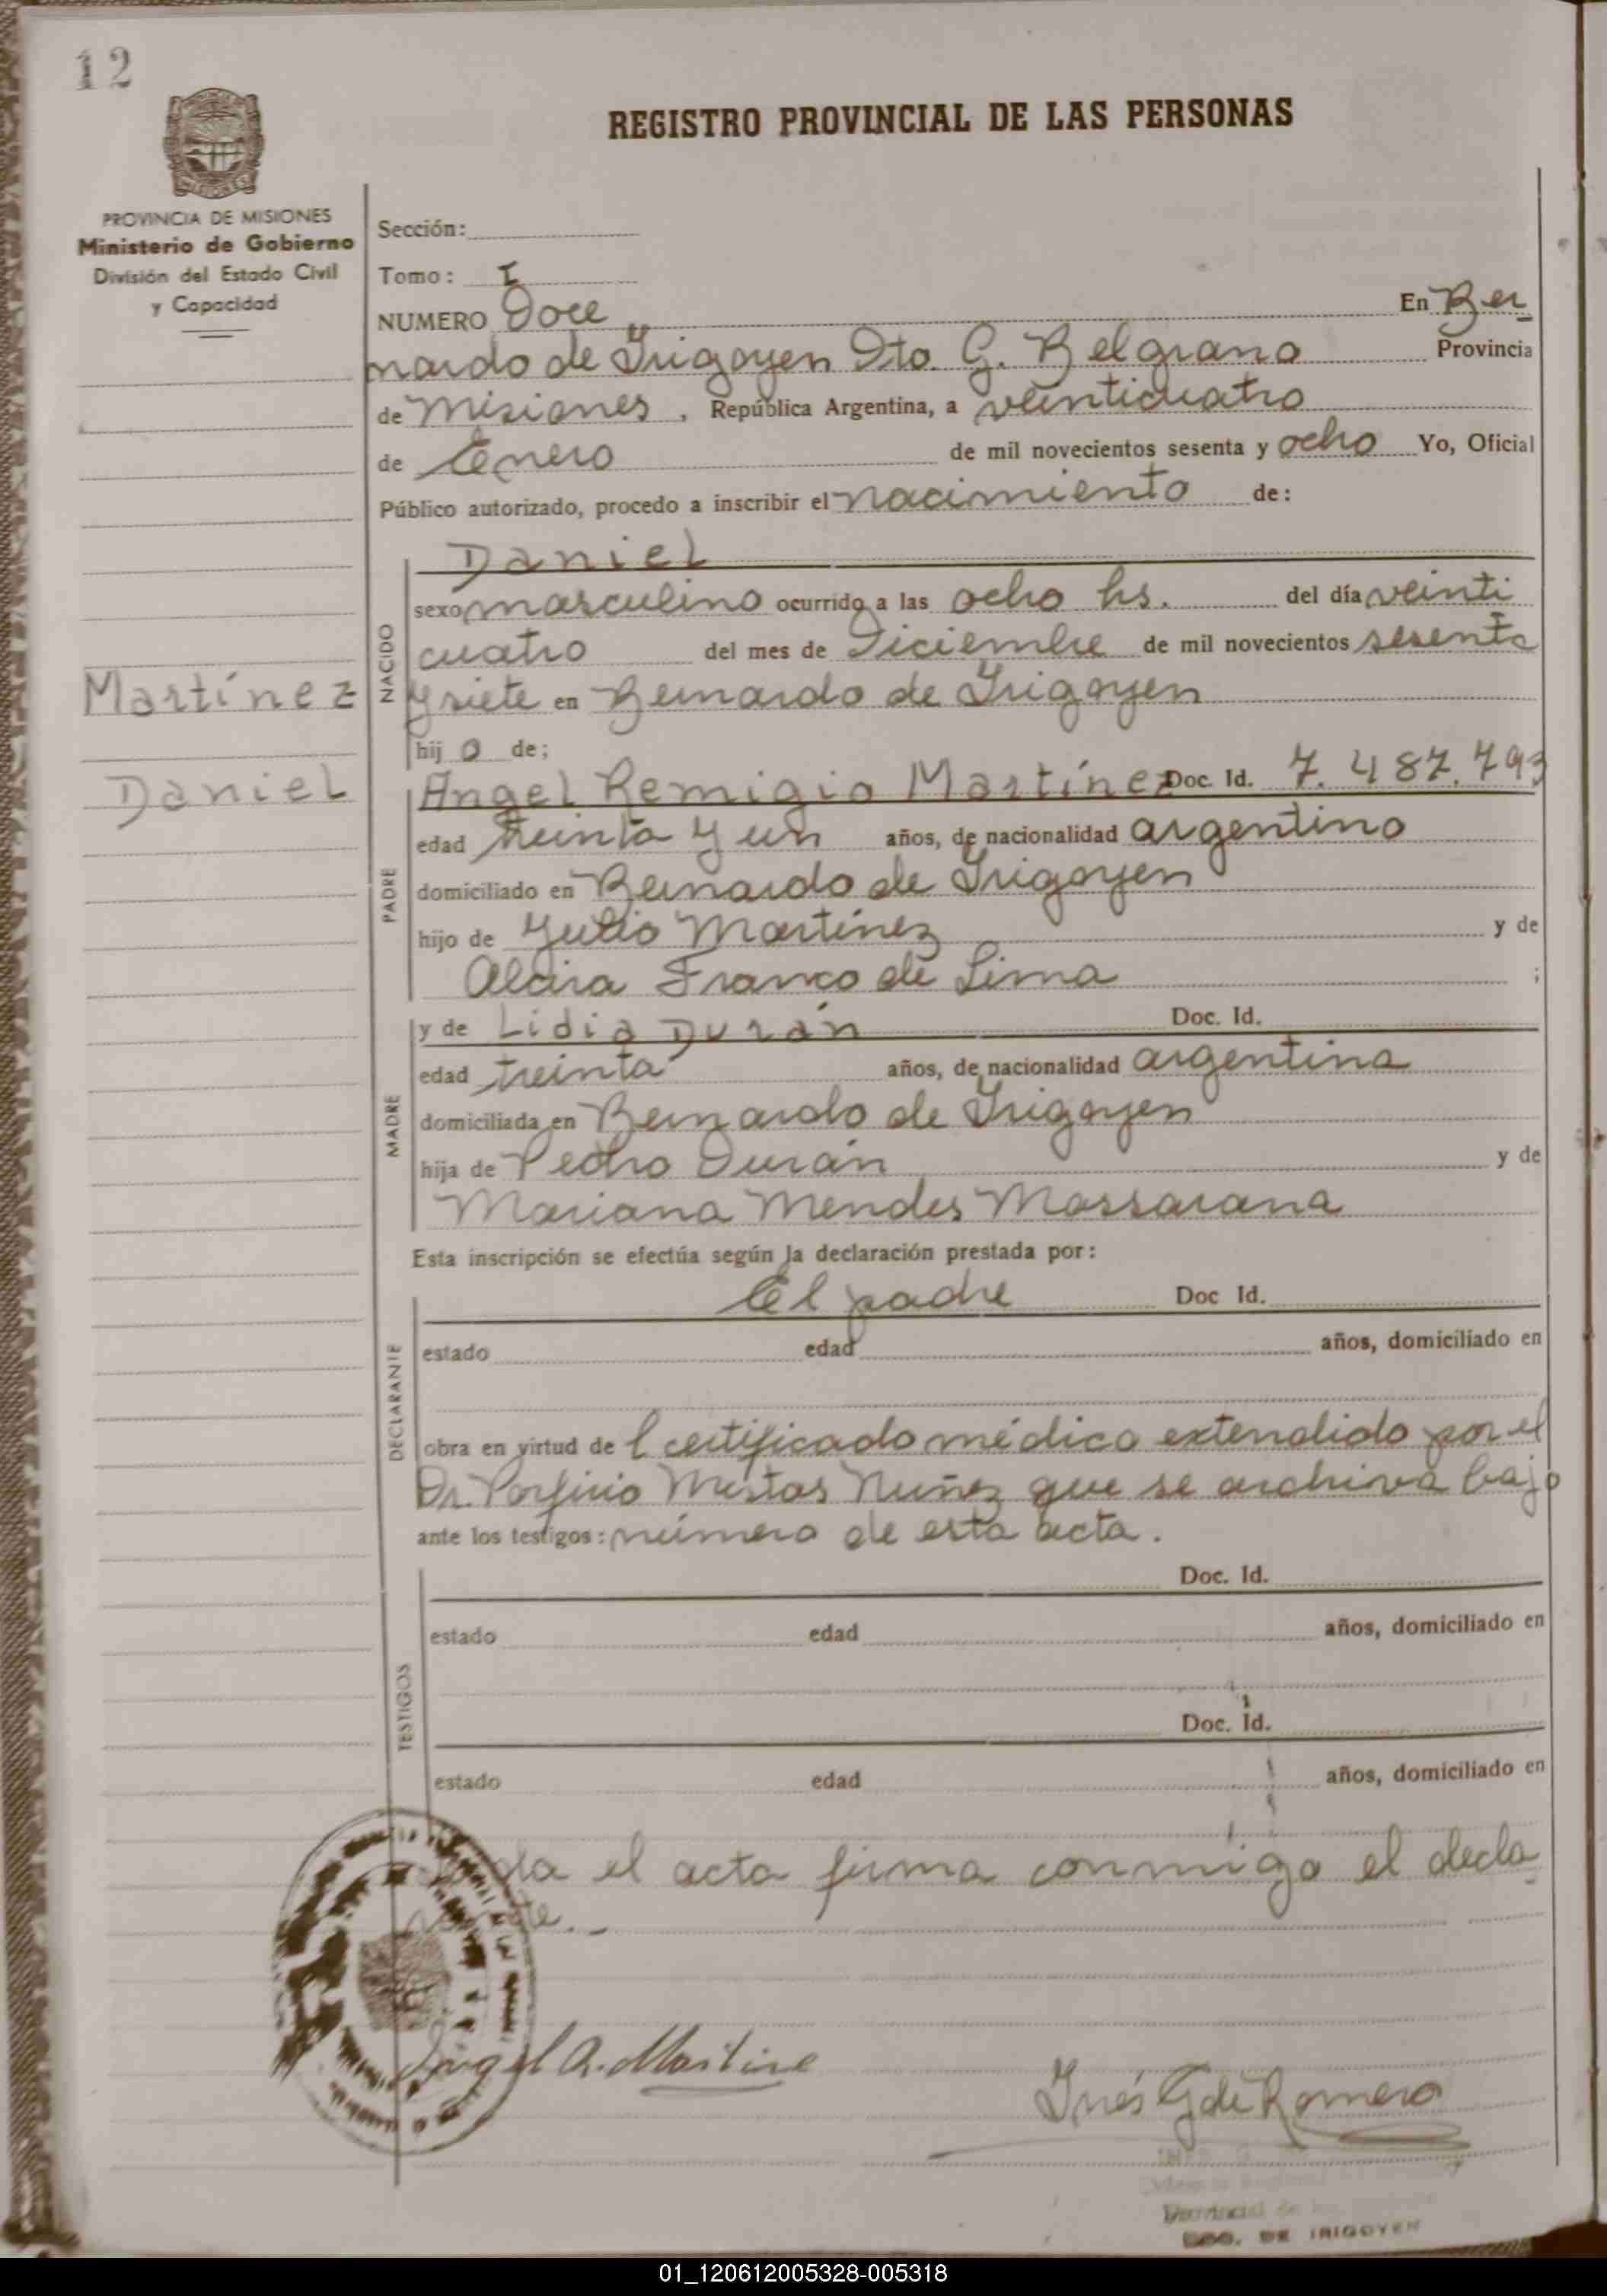 12
REGISTRO PROVINCIAL DE LAS PERSONAS
PROVINCIA DE MISIONES
Ministerio de Gobierno
División del Estado Civil
y Capacidad
Sección:
Tomo: I
NUMERO Doce En Ber
nardo de Irigoyen Dto. G. Belgrano Provincia
de Misiones, República Argentina, a veinticuatro
de Enero de mil novecientos sesenta y ocho Yo, Oficial
Público autorizado, procedo a inscribir el nacimiento de:
Daniel
NACIDO
sexo masculino ocurrido a las ocho hs. del día veinti
cuatro del mes de Diciembre de mil novecientos sesenta
y siete en Bernardo de Irigoyen
Martínez
Daniel
hijo de;
Angel Remigio Martínez Doc. Id. 7.487.793
PADRE
edad treinta y un años, de nacionalidad argentino
domiciliado en Bernardo de Irigoyen
hijo de Julio Martínez y de
Alcira Franco de Lima ;
y de Lidia Durán Doc. Id.
MADRE
edad treinta años, de nacionalidad argentina
domiciliada en Bernardo de Irigoyen
hija de Pedro Durán y de
Mariana Mendes Massarana
Esta inscripción se efectúa según la declaración prestada por:
El padre Doc Id.
DECLARANTE
estado edad años, domiciliado en
obra en virtud de l certificado médico extendido por el
Dr. Porfirio Mestas Nuñez que se archiva bajo
ante los testigos: número de esta acta.
Doc. Id.
TESTIGOS
estado edad años, domiciliado en
Doc. Id.
estado edad años, domiciliado en
el acta firma conmigo el decla
Angel R. Martine
Inés G de Romero
Provincial de
BDO. DE IRIGOYEN
01_120612005328-005318